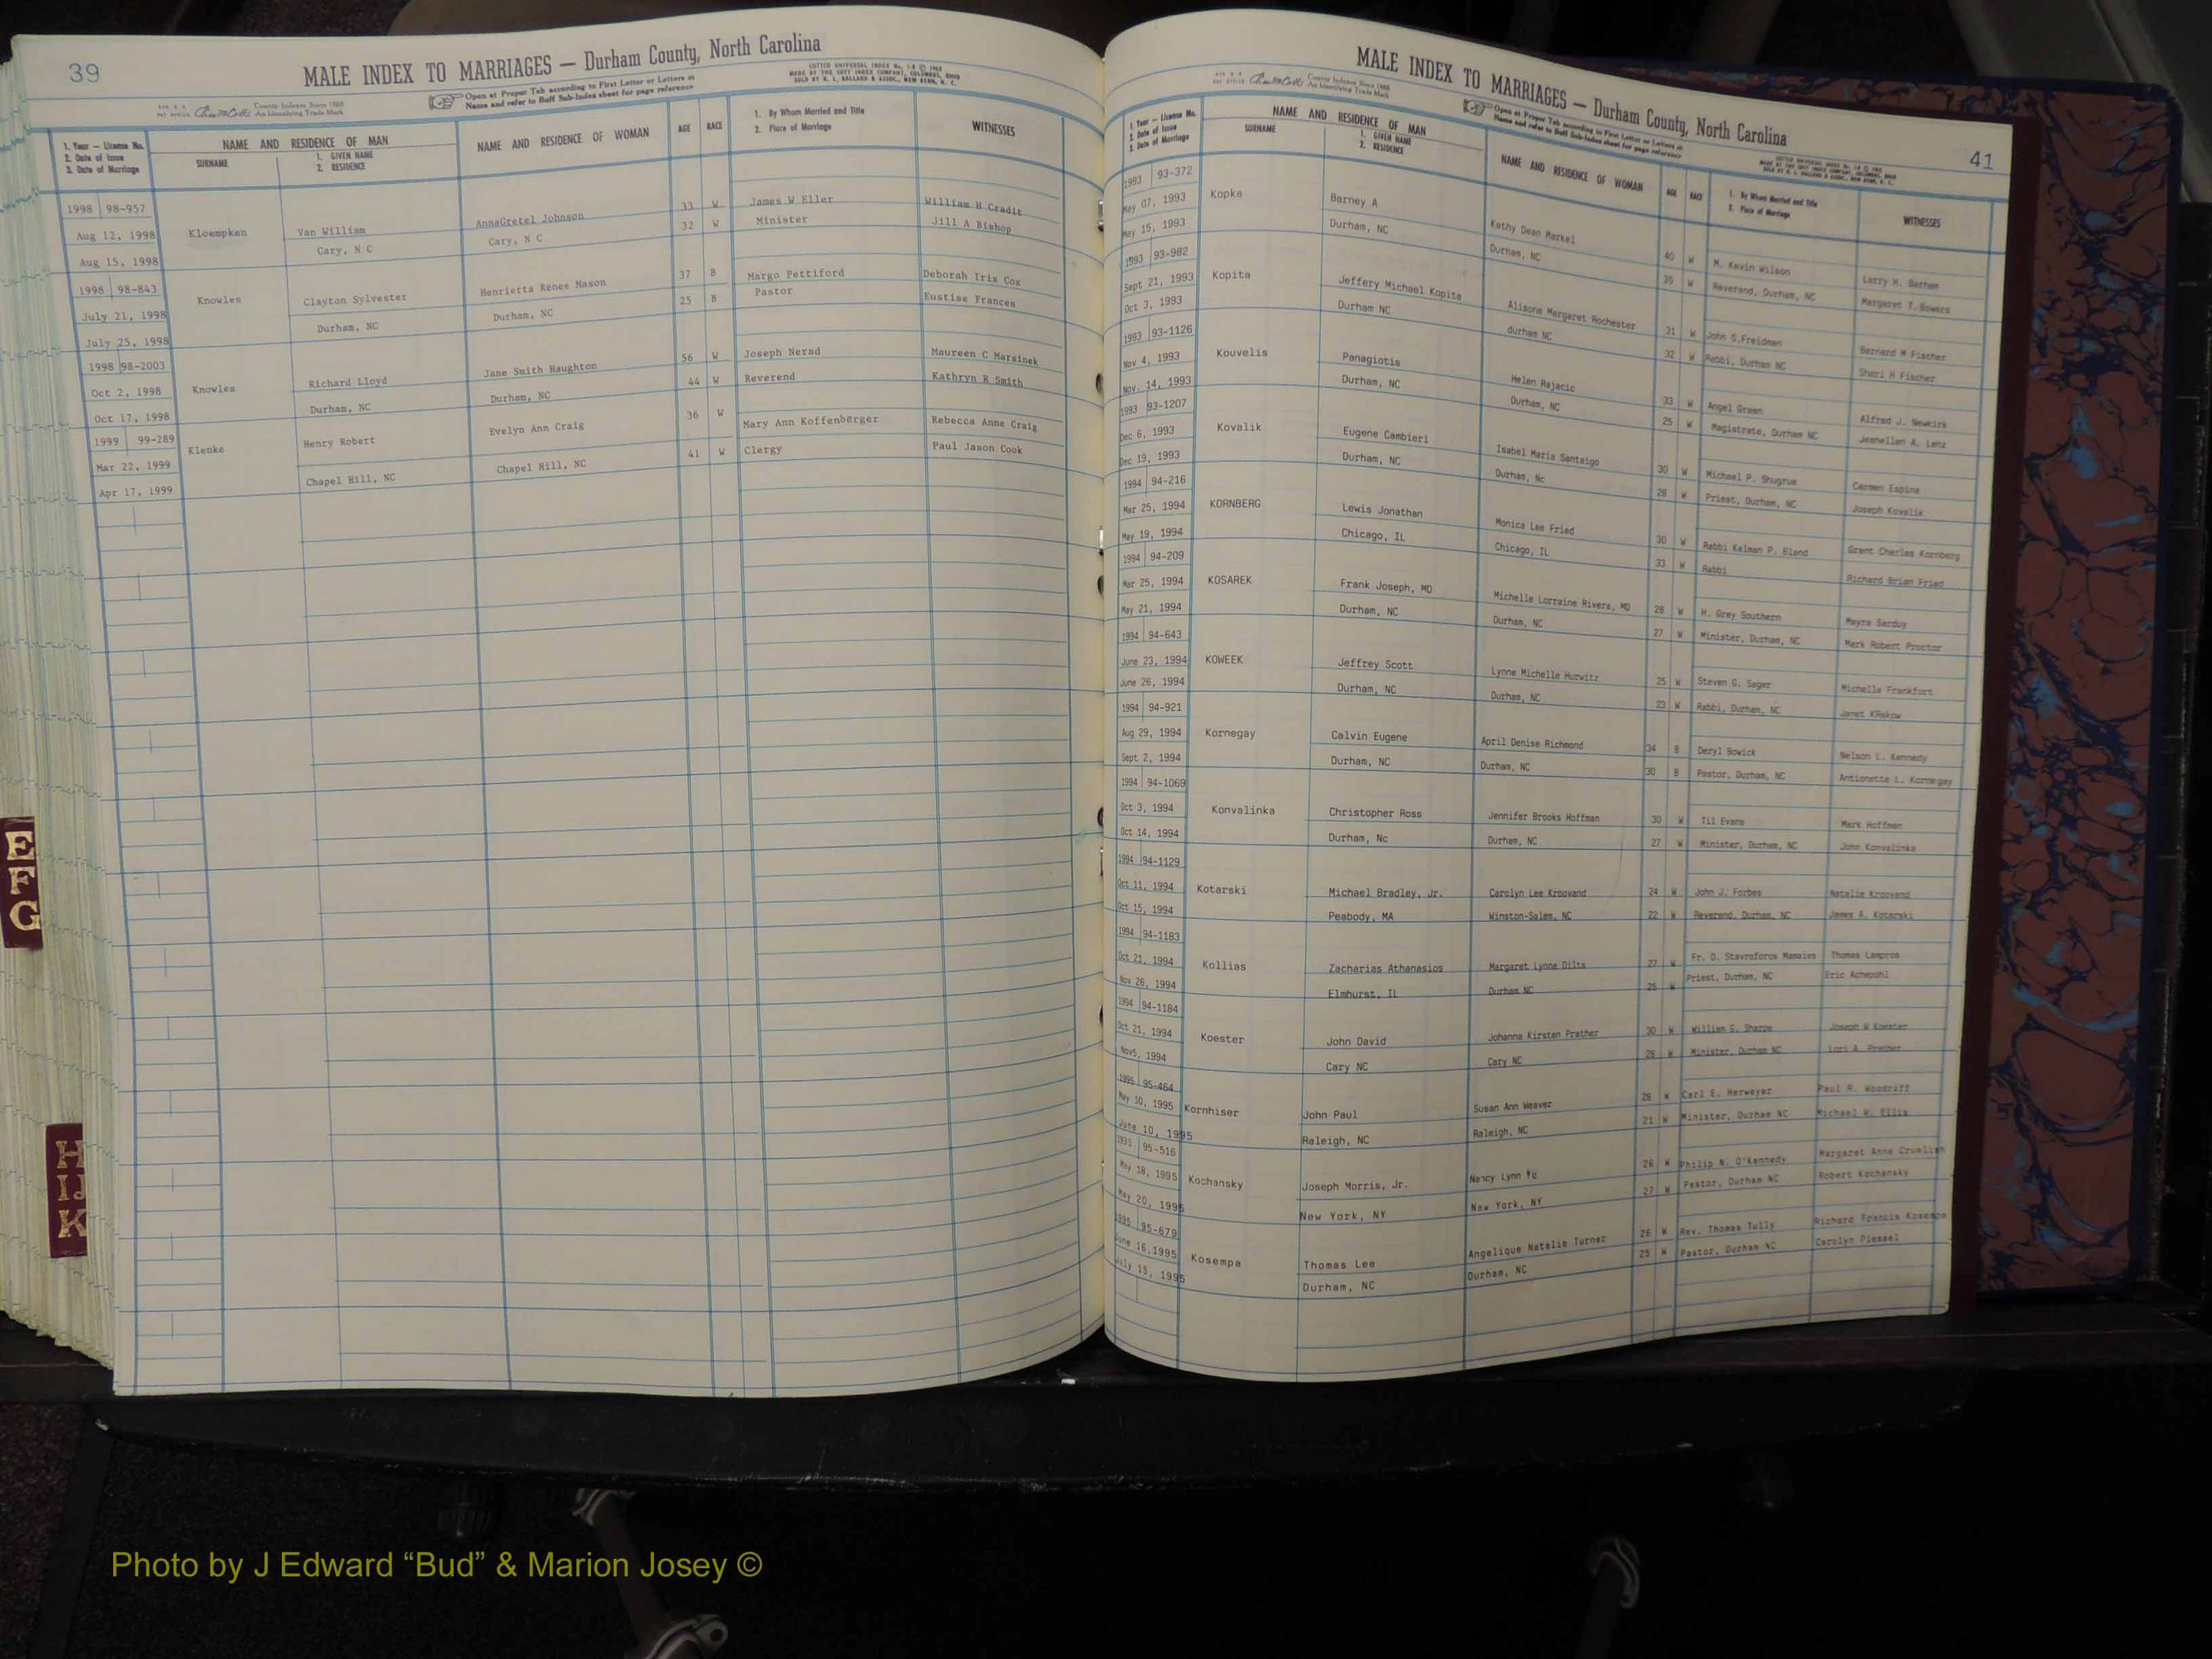 39
MALE INDEX TO MARRIAGES — Durham County, North Carolina
Open at Proper Tab according to First Letter or Letters in
Name and refer to Buff Sub-Index sheet for page reference
COTTCO UNIVERSAL INDEX
MADE BY THE COTT INDEX COMPANY, COLUMBUS, OHIO
County Indexes Since 1888
An Identifying Trade Mark
1. Year — License No.
2. Date of Issue
3. Date of Marriage
NAME AND RESIDENCE OF MAN
SURNAME
1. GIVEN NAME
2. RESIDENCE
NAME AND RESIDENCE OF WOMAN
AGE
RACE
1. By Whom Married and Title
2. Place of Marriage
WITNESSES
1998 98-957
Aug 12, 1998
Aug 15, 1998
Kloempken
Van William
Cary, N C
AnnaGretel Johnson
Cary, N C
33 W
32 W
James W Eller
Minister
William H Cradit
Jill A Bishop
1998 98-843
July 21, 1998
July 25, 1998
Knowles
Clayton Sylvester
Durham, NC
Henrietta Renee Mason
Durham, NC
37 B
25 B
Margo Pettiford
Pastor
Deborah Iris Cox
Eustise Frances
1998 98-2003
Oct 2, 1998
Oct 17, 1998
Knowles
Richard Lloyd
Durham, NC
Jane Smith Haughton
Durham, NC
56 W
44 W
Joseph Nerad
Reverend
Maureen C Marsinek
Kathryn R Smith
1999 99-289
Mar 22, 1999
Apr 17, 1999
Klenke
Henry Robert
Chapel Hill, NC
Evelyn Ann Craig
Chapel Hill, NC
36 W
41 W
Mary Ann Koffenberger
Clergy
Rebecca Anne Craig
Paul Jason Cook
E
F
G
H
IJ
K
MALE INDEX TO MARRIAGES — Durham County, North Carolina
41
Open at Proper Tab according to First Letter or Letters in
Name and refer to Buff Sub-Index sheet for page reference
County Indexes Since 1888
An Identifying Trade Mark
1. Year — License No.
2. Date of Issue
3. Date of Marriage
NAME AND RESIDENCE OF MAN
SURNAME
1. GIVEN NAME
2. RESIDENCE
NAME AND RESIDENCE OF WOMAN
AGE
RACE
1. By Whom Married and Title
2. Place of Marriage
WITNESSES
1993 93-372
May 07, 1993
May 15, 1993
Kopka
Barney A
Durham, NC
Kathy Dean Markel
Durham, NC
40 W
35 W
M. Kevin Wilson
Reverend, Durham, NC
Larry H. Barham
Margaret T. Bowers
1993 93-982
Sept 21, 1993
Oct 3, 1993
Kopita
Jeffery Michael Kopita
Durham NC
Alisone Margaret Rochester
durham NC
31 W
32 W
John S.Freidman
Rabbi, Durham NC
Bernard M Fischer
Shari H Fischer
1993 93-1126
Nov 4, 1993
Nov. 14, 1993
Kouvelis
Panagiotis
Durham, NC
Helen Rajacic
Durham, NC
33 W
25 W
Angel Green
Magistrate, Durham NC
Alfred J. Newkirk
Jeanellen A. Lanz
1993 93-1207
Dec 6, 1993
Dec 19, 1993
Kovalik
Eugene Cambieri
Durham, NC
Isabel Maria Santaigo
Durham, Nc
30 W
28 W
Michael P. Shugrue
Priest, Durham, NC
Carmen Espina
Joseph Kovalik
1994 94-216
Mar 25, 1994
May 19, 1994
KORNBERG
Lewis Jonathan
Chicago, IL
Monica Lee Fried
Chicago, IL
30 W
33 W
Rabbi Kalman P. Bland
Rabbi
Grant Charles Kornberg
Richard Brian Fried
1994 94-209
Mar 25, 1994
May 21, 1994
KOSAREK
Frank Joseph, MD
Durham, NC
Michelle Lorraine Rivera, MD
Durham, NC
28 W
27 W
H. Grey Southern
Minister, Durham, NC
Mayra Sanduy
Mark Robert Proctor
1994 94-643
June 23, 1994
June 26, 1994
KOWEEK
Jeffrey Scott
Durham, NC
Lynne Michelle Hurwitz
Durham, NC
25 W
23 W
Steven G. Sager
Rabbi, Durham, NC
Michelle Frankfurt
Janet KRakow
1994 94-921
Aug 29, 1994
Sept 2, 1994
Kornegay
Calvin Eugene
Durham, NC
April Denise Richmond
Durham, NC
34 B
30 B
Deryl Bowick
Pastor, Durham, NC
Nelson L. Kennedy
Antionette L. Kornegay
1994 94-1069
Oct 3, 1994
Oct 14, 1994
Konvalinka
Christopher Ross
Durham, Nc
Jennifer Brooks Hoffman
Durham, NC
30 W
27 W
Til Evans
Minister, Durham, NC
Mark Hoffman
John Konvalinka
1994 94-1129
Oct 11, 1994
Oct 15, 1994
Kotarski
Michael Bradley, Jr.
Peabody, MA
Carolyn Lee Kroovand
Winston-Salem, NC
24 W
22 W
John J. Forbes
Reverend, Durham, NC
Natalie Kroovand
James A. Kotarski
1994 94-1183
Oct 21, 1994
Nov 26, 1994
Kollias
Zacharias Athanasios
Elmhurst, IL
Margaret Lynne Dilts
Durham NC
27 W
25 W
Fr. D. Stavroforos Mamaies
Priest, Durham, NC
Thomas Lampros
Eric Achepohl
1994 94-1184
Oct 21, 1994
Nov5, 1994
Koester
John David
Cary NC
Johanna Kirsten Prather
Cary NC
30 W
28 W
William G. Sharpe
Minister, Durham NC
Joseph W Koester
Lori A. Prather
1995 95-464
May 10, 1995
June 10, 1995
Kornhiser
John Paul
Raleigh, NC
Susan Ann Weaver
Raleigh, NC
28 W
21 W
Carl E. Harweyer
Minister, Durham NC
Paul R. Woodriff
Michael W. Ellis
1995 95-516
May 18, 1995
May 20, 1995
Kochansky
Joseph Morris, Jr.
New York, NY
Nancy Lynn
New York, NY
26 W
27 W
Philip N. O'Kennedy
Pastor, Durham NC
Margaret Anne Crumlish
Robert Kochansky
1995 95-679
June 16,1995
July 15, 1995
Kosempa
Thomas Lee
Durham, NC
Angelique Natalie Turner
Durham, NC
26 W
25 W
Rev. Thomas Tully
Pastor, Durham NC
Richard Francis Kosempa
Carolyn Plessel
Photo by J Edward “Bud” & Marion Josey ©